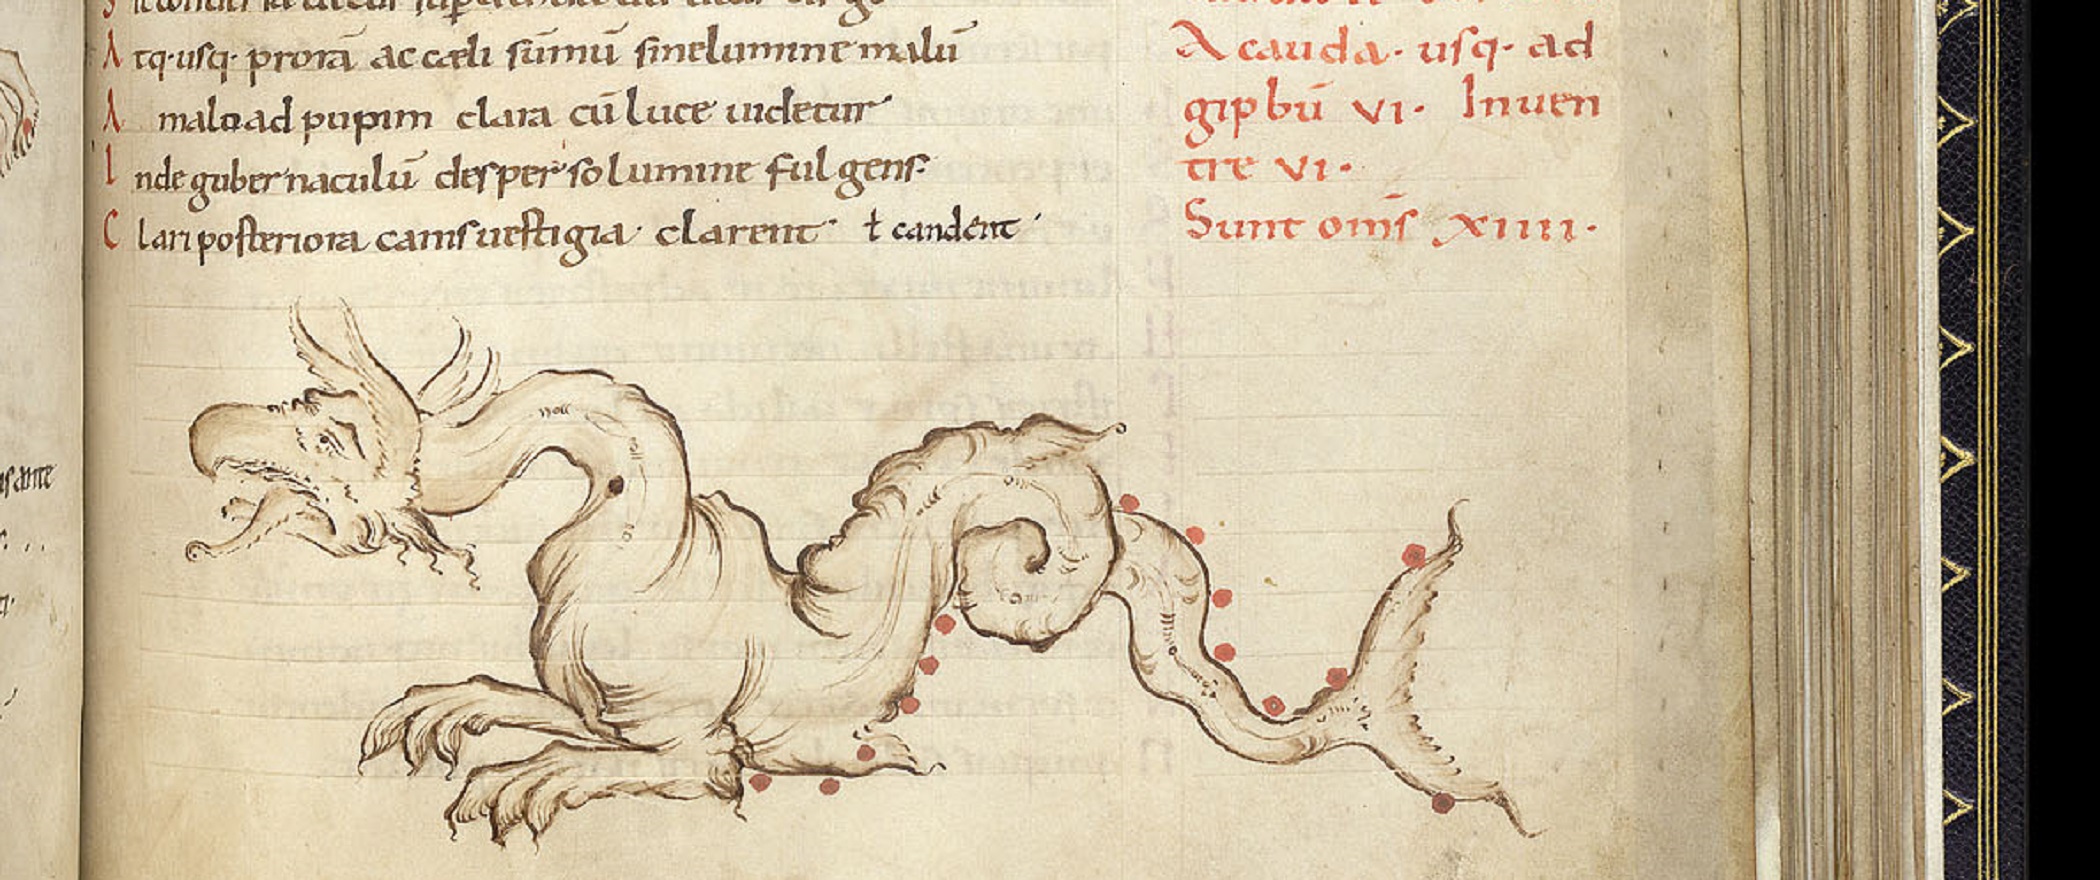 Atq· usq· prorā ac cæli sūmū sine lumine malū
A malo ad pupim clara cū luce uidetur
Inde gubernaculū desperso lumine fulgens·
Clari posteriora canis uestigia clarent· ł candent
A cauda· usq· ad
gipbū VI· In uen
tre VI·
Sunt om̄s XIIII·